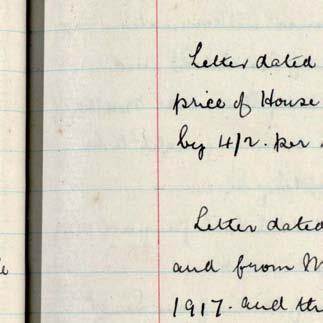 Letter dated
price of House
by 4/2. per
Letter dated
and from
1917. and